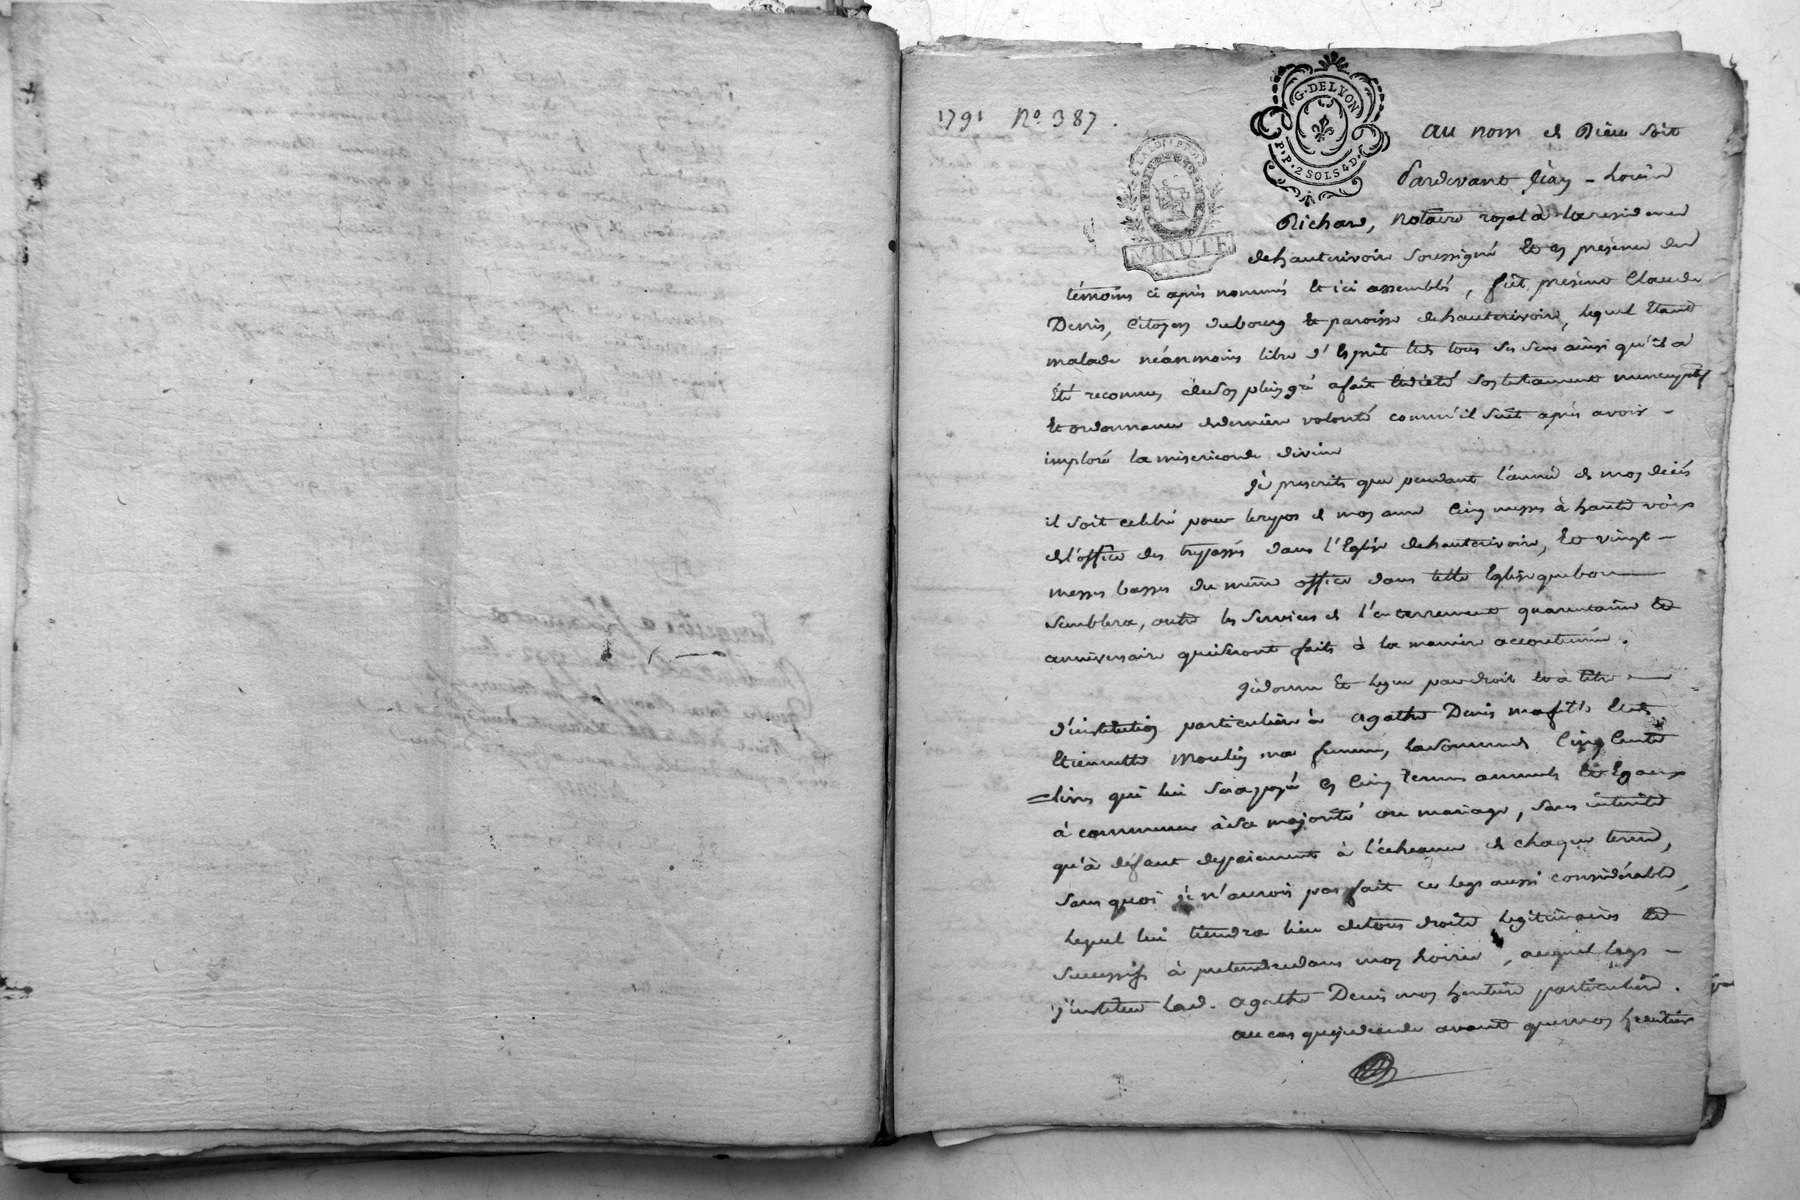 1791 No. 387.
G. DE LYON
P.P. 2 SOLS 4 D.
LA LOI ET LE ROI
MINUTE
au nom de Dieu soit
Pardevant Jean - Louis
Richard, notaire royal à la residence
de hauterivoire soussigné et en presence des
témoins ci après nommés et ici assemblés, fût présent Claude
Denis, Citoyen du bourg et paroisse de hauterivoire, lequel étant
malade néanmoins libre d'Esprit et de tous ses sens ainsi qu'il a
été reconnu, de son plein gré a fait et dicté son testament nuncupatif
et ordonnance de derniere volonté comm'il suit après avoir -
imploré la misericorde divine
Je prescrits que pendant l'année de mon décès
il soit celebré pour le repos de mon ame Cinq messes à haute voix
de l'office des trépassés dans l'Eglise de hauterivoire, et vingt -
messes basses du même office dans telle Eglise que bon
semblera, outre les services de l'enterrement quarantaine et
anniversaire qui seront faits à la maniere accoutumée.
Je donne et legue par droit et à titre
d'institution particuliere à agathe Denis ma fille et de
Etiennette Moulin ma femme, la somme de Cinq Cents
livres qui lui sera payée en Cinq termes annuels et Egaux
à commencer à sa majorité ou mariage, sans intérêts
qu'à défaut de paiement à l'échéance de chaque terme,
sans quoi je n'aurois pas fait ce legs aussi considérable,
lequel lui tiendra lieu de tous droits legitimaires et
successifs à pretendre dans mon hoirie, auquel legs -
j'institue lad. agathe Denis mon heritiere particuliere.
au cas que je decede avant que mon heritier